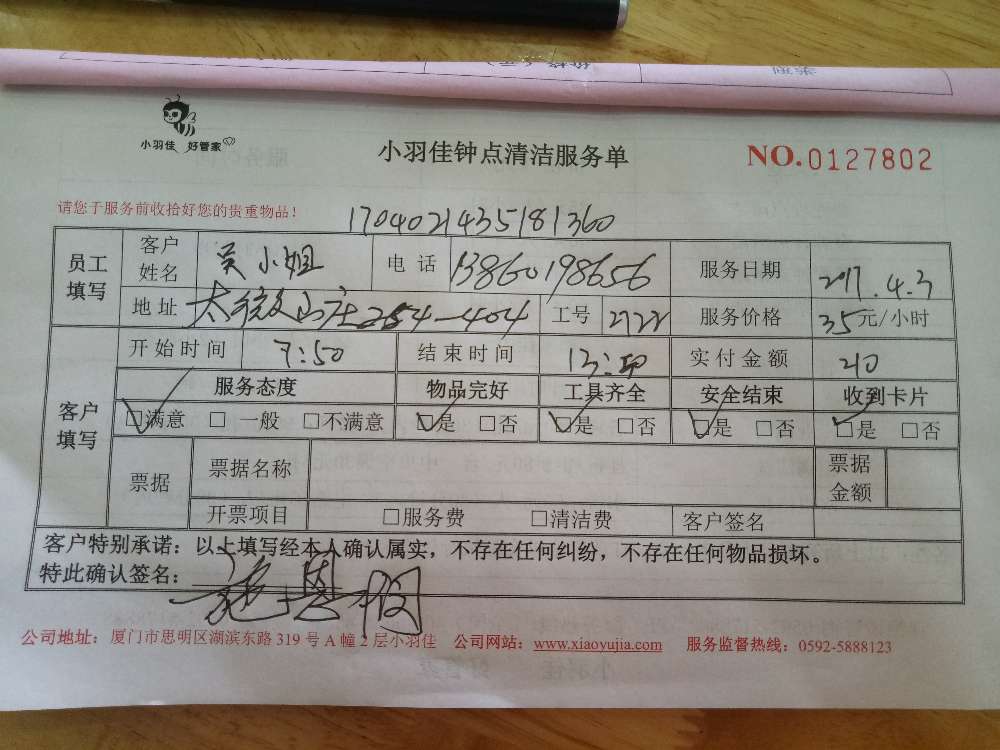 小羽佳 好管家
小羽佳钟点清洁服务单
NO.0127802
请您于服务前收拾好您的贵重物品！
1704021435181360
员工填写 客户姓名 吴小姐 电话 13860198656 服务日期 2017.4.3
地址 太微山庄254-404 工号 2722 服务价格 35元/小时
客户填写 开始时间 7:50 结束时间 13:50 实付金额 210
服务态度 物品完好 工具齐全 安全结束 收到卡片
☑满意 □一般 □不满意 ☑是 □否 ☑是 □否 ☑是 □否 ☑是 □否
票据 票据名称 票据金额
开票项目 □服务费 □清洁费 客户签名
客户特别承诺：以上填写经本人确认属实，不存在任何纠纷，不存在任何物品损坏。
特此确认签名：
公司地址：厦门市思明区湖滨东路319号A幢2层小羽佳 公司网站：www.xiaoyujia.com 服务监督热线：0592-5888123